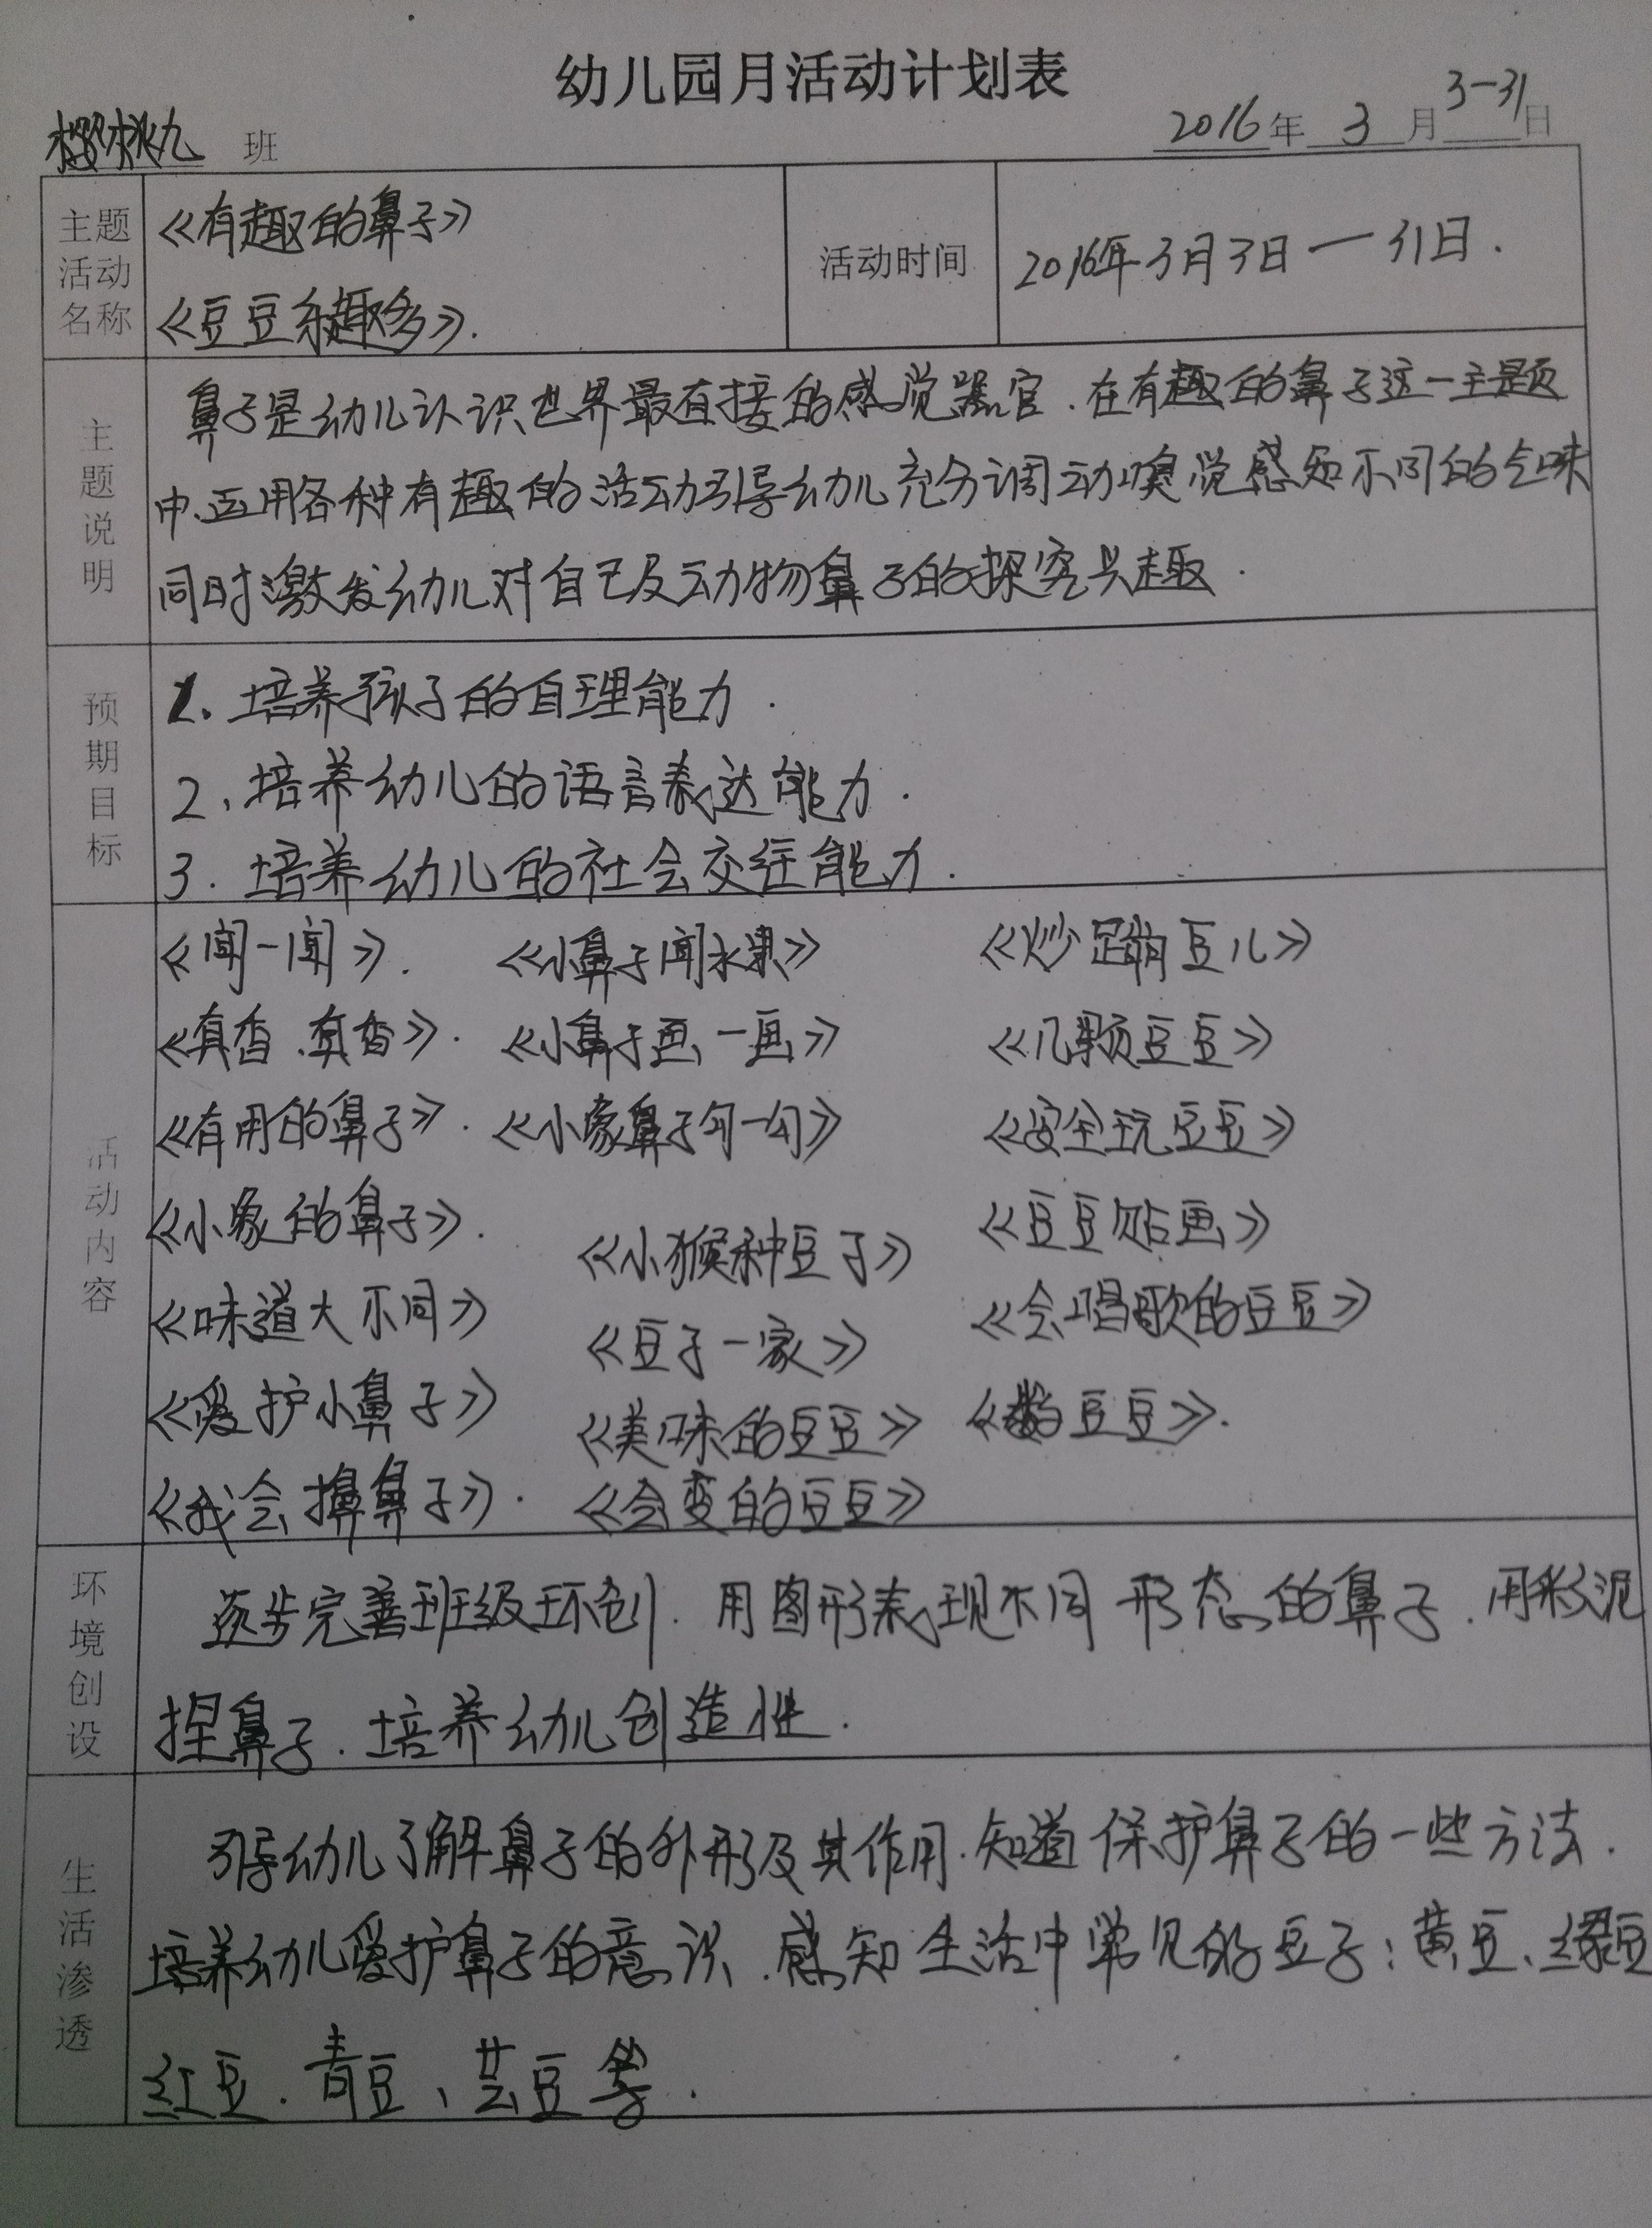 幼儿园月活动计划表
樱桃九 班
2016年 3 月 3-31日
主题活动名称
《有趣的鼻子》
《豆豆乐趣多》.
活动时间
2016年3月3日一31日.
主题说明
鼻子是幼儿认识世界最直接的感觉器官.在有趣的鼻子这一主题
中.运用各种有趣的活动引导幼儿充分调动嗅觉感知不同的气味
同时激发幼儿对自己及动物鼻子的探究兴趣.
预期目标
1、培养孩子的自理能力.
2、培养幼儿的语言表达能力.
3.培养幼儿的社会交往能力.
活动内容
《闻一闻》. 《小鼻子闻水果》 《炒蹦豆儿》
《真香、真香》. 《小鼻子画一画》 《几颗豆豆》
《有用的鼻子》. 《小象鼻子勾一勾》 《安全玩豆豆》
《小象的鼻子》. 《小猴种豆子》 《豆豆贴画》
《味道大不同》 《豆子一家》 《会唱歌的豆豆》
《爱护小鼻子》 《美味的豆豆》 《数豆豆》.
《我会擤鼻子》. 《会变的豆豆》
环境创设
逐步完善班级环创.用图形表现不同形态的鼻子.用彩泥
捏鼻子.培养幼儿创造性.
生活渗透
引导幼儿了解鼻子的外形及其作用.知道保护鼻子的一些方法.
培养幼儿爱护鼻子的意识.感知生活中常见的豆子:黄豆、绿豆
红豆.青豆、芸豆等.